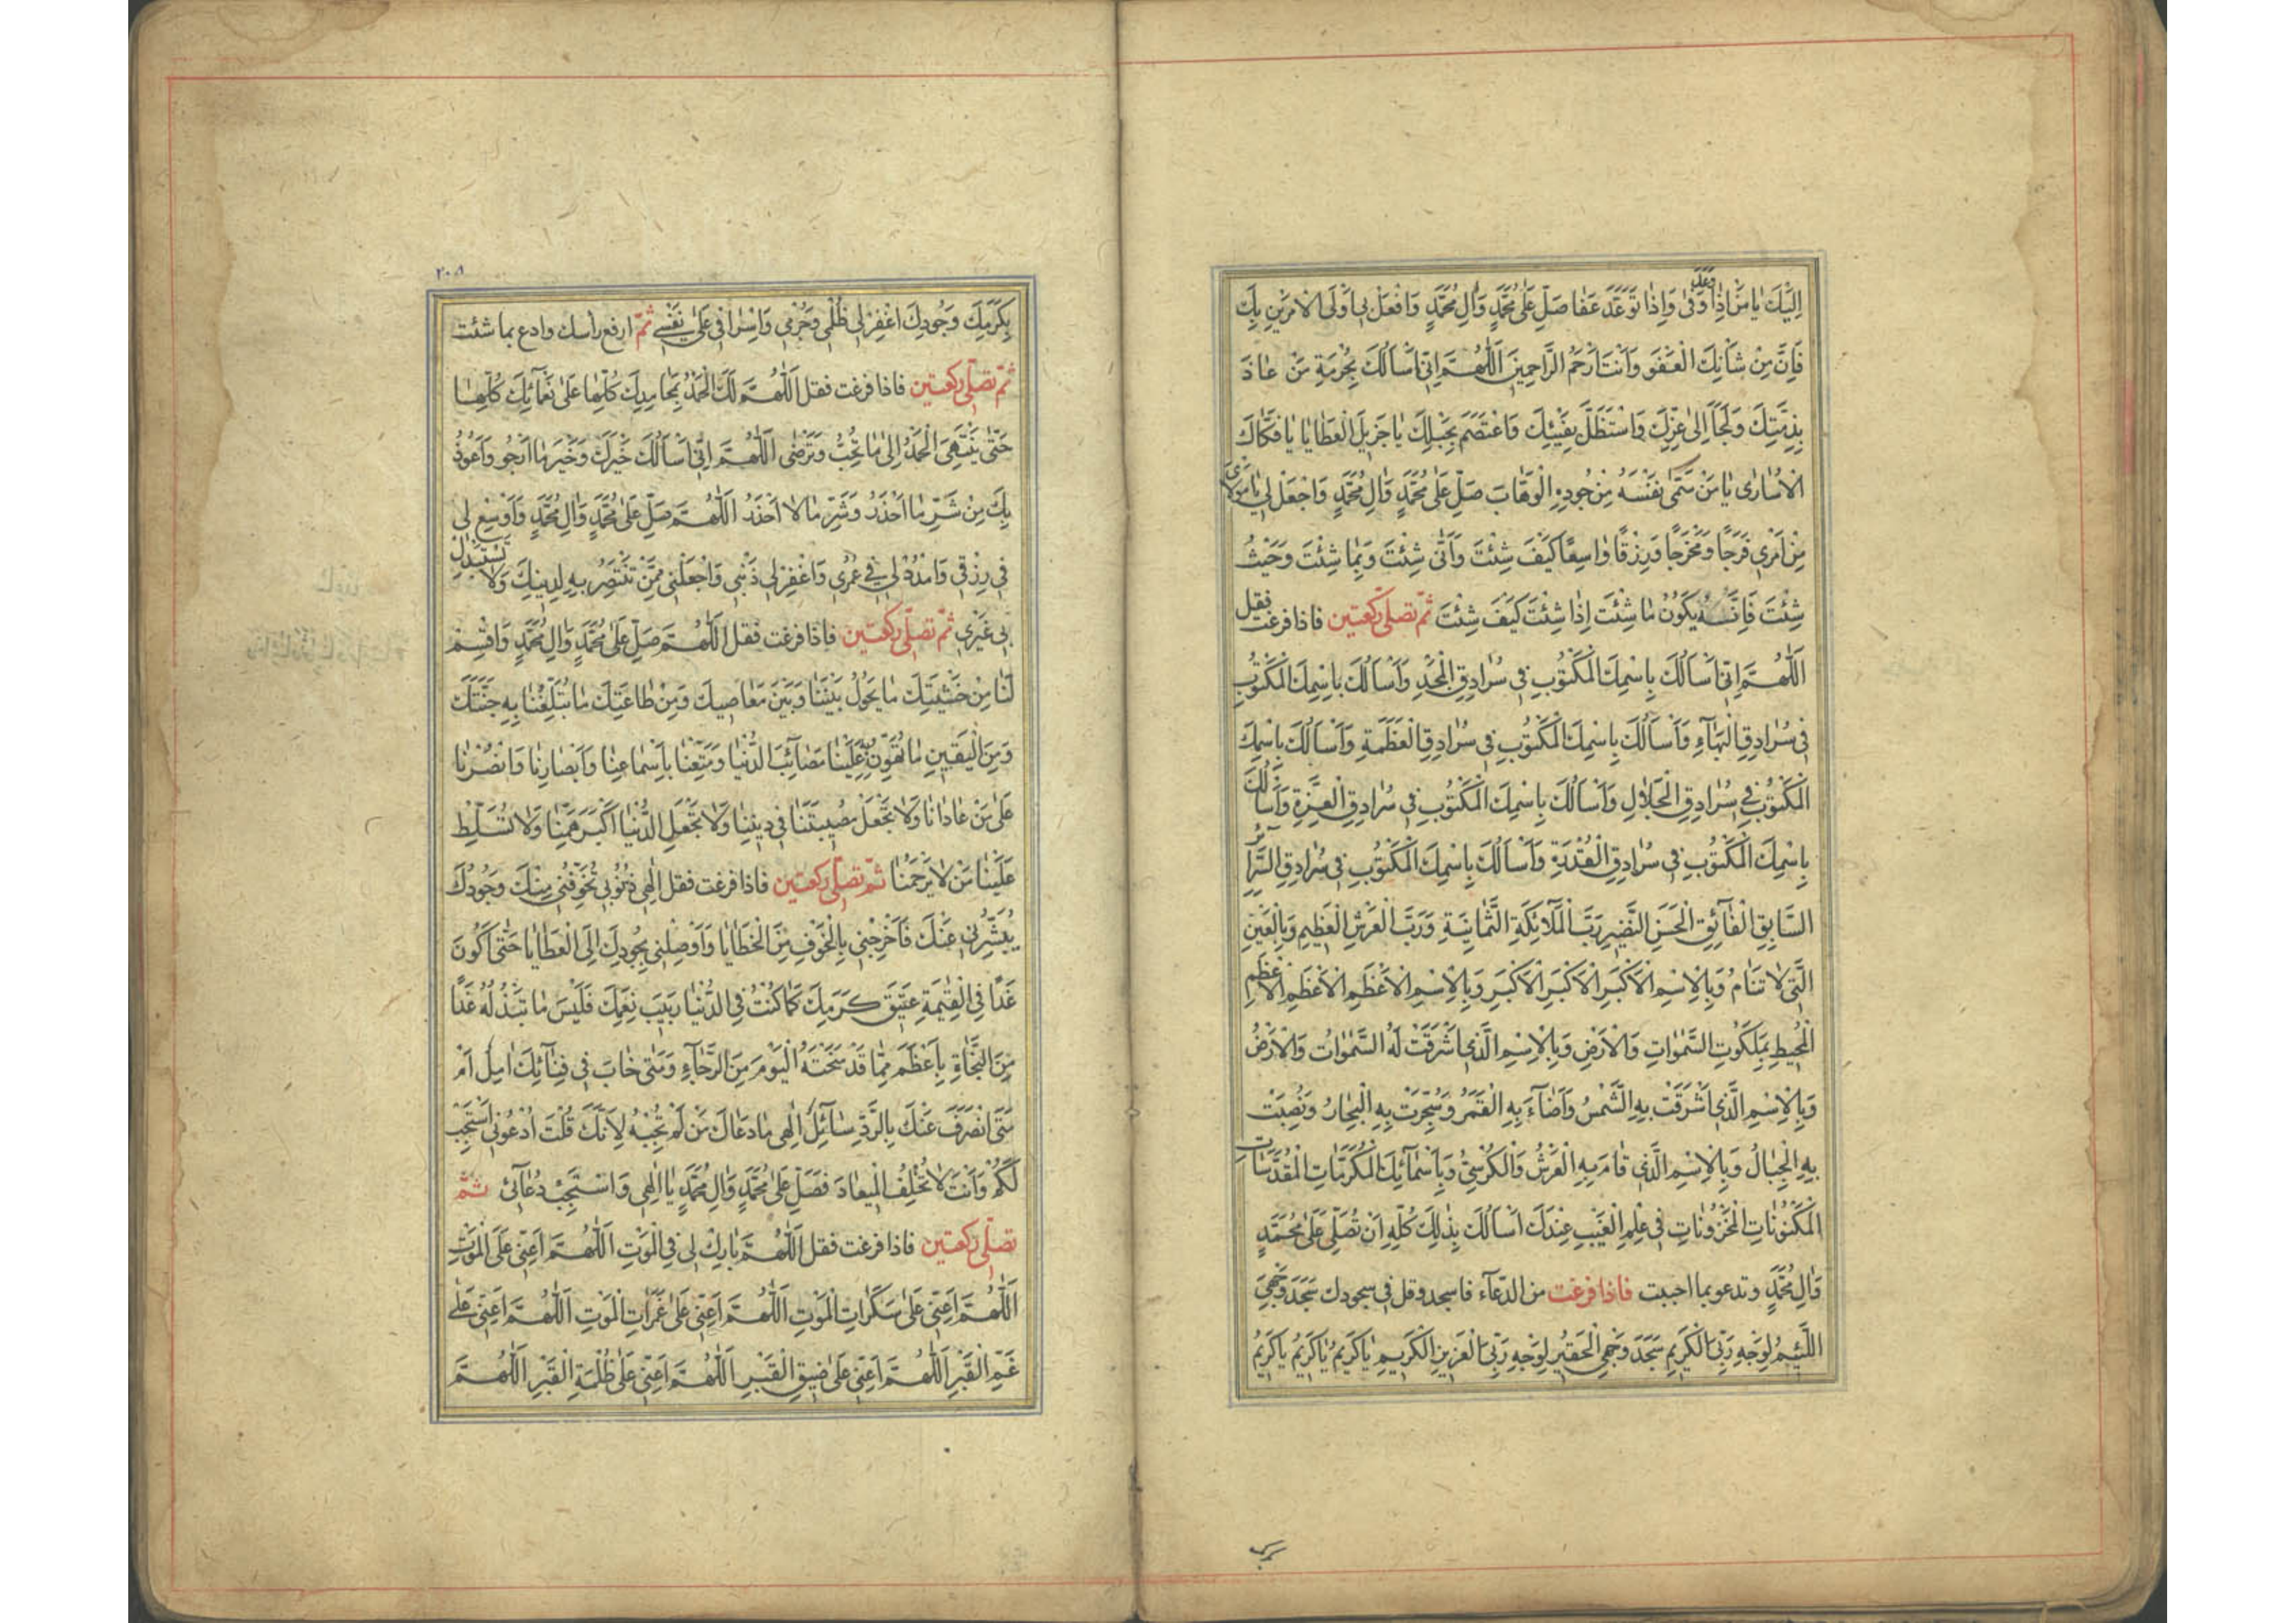 اِلَيْكَ يَا مَنْ اِذَا وَعَدَ وَفٰى وَاِذَا تَوَعَّدَ عَفَا صَلِّ عَلٰى مُحَمَّدٍ وَاٰلِ مُحَمَّدٍ وَافْعَلْ بِى اَوْلَى الْاَمْرَيْنِ بِكَ
فَاِنَّ مِنْ شَأْنِكَ الْعَفْوَ وَاَنْتَ اَرْحَمُ الرَّاحِمِينَ اَللّٰهُمَّ اِنِّى اَسْاَلُكَ بِحُرْمَةِ مَنْ عَاذَ
بِذِمَّتِكَ وَلَجَأَ اِلٰى عِزِّكَ وَاسْتَظَلَّ بِفَيْئِكَ وَاعْتَصَمَ بِحَبْلِكَ يَا جَزِيلَ الْعَطَايَا يَا فَكَّاكَ
الْاُسَارٰى يَا مَنْ سَمّٰى نَفْسَهُ مِنْ جُودِهِ الْوَهَّابَ صَلِّ عَلٰى مُحَمَّدٍ وَاٰلِ مُحَمَّدٍ وَاجْعَلْ لِى يَا مَوْلَاىَ
مِنْ اَمْرِى فَرَجًا وَمَخْرَجًا وَرِزْقًا وَاسِعًا كَيْفَ شِئْتَ وَاَنّٰى شِئْتَ وَبِمَا شِئْتَ وَحَيْثُ
شِئْتَ فَاِنَّهُ يَكُونُ مَا شِئْتَ اِذَا شِئْتَ كَيْفَ شِئْتَ ثمّ تصلّى ركعتين فاذا فرغت فقل
اَللّٰهُمَّ اِنِّى اَسْاَلُكَ بِاسْمِكَ الْمَكْتُوبِ فِى سُرَادِقِ الْمَجْدِ وَاَسْاَلُكَ بِاسْمِكَ الْمَكْتُوبِ
فِى سُرَادِقِ الْبَهَاءِ وَاَسْاَلُكَ بِاسْمِكَ الْمَكْتُوبِ فِى سُرَادِقِ الْعَظَمَةِ وَاَسْاَلُكَ بِاسْمِكَ
الْمَكْتُوبِ فِى سُرَادِقِ الْجَلَالِ وَاَسْاَلُكَ بِاسْمِكَ الْمَكْتُوبِ فِى سُرَادِقِ الْعِزَّةِ وَاَسْاَلُكَ
بِاسْمِكَ الْمَكْتُوبِ فِى سُرَادِقِ الْقُدْرَةِ وَاَسْاَلُكَ بِاسْمِكَ الْمَكْتُوبِ فِى سُرَادِقِ السَّرَائِرِ
السَّابِقِ الْفَائِقِ الْحَسَنِ النَّضِيرِ رَبَّ الْمَلَائِكَةِ الثَّمَانِيَةِ وَرَبَّ الْعَرْشِ الْعَظِيمِ وَبِالْعَيْنِ
الَّتِى لَا تَنَامُ وَبِالْاِسْمِ الْاَكْبَرِ الْاَكْبَرِ الْاَكْبَرِ وَبِالْاِسْمِ الْاَعْظَمِ الْاَعْظَمِ الْاَعْظَمِ
الْمُحِيطِ بِمَلَكُوتِ السَّمٰوَاتِ وَالْاَرْضِ وَبِالْاِسْمِ الَّذِى اَشْرَقَتْ لَهُ السَّمٰوَاتُ وَالْاَرْضُ
وَبِالْاِسْمِ الَّذِى اَشْرَقَتْ بِهِ الشَّمْسُ وَاَضَاءَ بِهِ الْقَمَرُ وَسُجِّرَتْ بِهِ الْبِحَارُ وَنُصِبَتْ
بِهِ الْجِبَالُ وَبِالْاِسْمِ الَّذِى قَامَ بِهِ الْعَرْشُ وَالْكُرْسِىُّ وَبِاَسْمَائِكَ الْمُكَرَّمَاتِ الْمُقَدَّسَاتِ
الْمَكْنُونَاتِ الْمَخْزُونَاتِ فِى عِلْمِ الْغَيْبِ عِنْدَكَ اَسْاَلُكَ بِذٰلِكَ كُلِّهِ اَنْ تُصَلِّىَ عَلٰى مُحَمَّدٍ
وَاٰلِ مُحَمَّدٍ وتدعو بما احببت فاذا فرغت من الدّعاء فاسجد وقل فى سجودك سَجَدَ وَجْهِىَ
اللَّئِيمُ لِوَجْهِ رَبِّىَ الْكَرِيمِ سَجَدَ وَجْهِىَ الْحَقِيرُ لِوَجْهِ رَبِّىَ الْعَزِيزِ الْكَرِيمِ يَا كَرِيمُ يَا كَرِيمُ يَا كَرِيمُ
بِكَرَمِكَ وَجُودِكَ اغْفِرْ لِى ظُلْمِى وَجُرْمِى وَاِسْرَافِى عَلٰى نَفْسِى ثمّ ارفع رأسك وادع بما شئت
ثمّ تصلّى ركعتين فاذا فرغت فقل اَللّٰهُمَّ لَكَ الْحَمْدُ بِمَحَامِدِكَ كُلِّهَا عَلٰى نَعْمَائِكَ كُلِّهَا
حَتّٰى يَنْتَهِىَ الْحَمْدُ اِلٰى مَا تُحِبُّ وَتَرْضٰى اَللّٰهُمَّ اِنِّى اَسْاَلُكَ خَيْرَكَ وَخَيْرَ مَا اَرْجُو وَاَعُوذُ
بِكَ مِنْ شَرِّ مَا اَحْذَرُ وَشَرِّ مَا لَا اَحْذَرُ اَللّٰهُمَّ صَلِّ عَلٰى مُحَمَّدٍ وَاٰلِ مُحَمَّدٍ وَاَوْسِعْ لِى
فِى رِزْقِى وَامْدُدْ لِى فِى عُمْرِى وَاغْفِرْ لِى ذَنْبِى وَاجْعَلْنِى مِمَّنْ تَنْتَصِرُ بِهِ لِدِينِكَ وَلَا تَسْتَبْدِلْ
بِى غَيْرِى ثمّ تصلّى ركعتين فاذا فرغت فقل اَللّٰهُمَّ صَلِّ عَلٰى مُحَمَّدٍ وَاٰلِ مُحَمَّدٍ وَاقْسِمْ
لَنَا مِنْ خَشْيَتِكَ مَا يَحُولُ بَيْنَنَا وَبَيْنَ مَعَاصِيكَ وَمِنْ طَاعَتِكَ مَا تُبَلِّغُنَا بِهِ جَنَّتَكَ
وَمِنَ الْيَقِينِ مَا تُهَوِّنُ بِهِ عَلَيْنَا مَصَائِبَ الدُّنْيَا وَمَتِّعْنَا بِاَسْمَاعِنَا وَاَبْصَارِنَا وَانْصُرْنَا
عَلٰى مَنْ عَادَانَا وَلَا تَجْعَلْ مُصِيبَتَنَا فِى دِينِنَا وَلَا تَجْعَلِ الدُّنْيَا اَكْبَرَ هَمِّنَا وَلَا تُسَلِّطْ
عَلَيْنَا مَنْ لَا يَرْحَمُنَا ثمّ تصلّى ركعتين فاذا فرغت فقل اِلٰهِى ذُنُوبِى تُخَوِّفُنِى مِنْكَ وَجُودُكَ
يُبَشِّرُنِى عَنْكَ فَاَخْرِجْنِى بِالْخَوْفِ مِنَ الْخَطَايَا وَاَوْصِلْنِى بِجُودِكَ اِلَى الْعَطَايَا حَتّٰى اَكُونَ
غَدًا فِى الْقِيٰمَةِ عَتِيقَ كَرَمِكَ كَمَا كُنْتُ فِى الدُّنْيَا رَبِيبَ نِعَمِكَ فَلَيْسَ مَا تَبْذُلُهُ غَدًا
مِنَ النَّجَاةِ بِاَعْظَمَ مِمَّا قَدْ مَنَحْتَهُ الْيَوْمَ مِنَ الرَّجَاءِ وَمَتٰى خَابَ فِى فِنَائِكَ اٰمِلٌ اَمْ
مَتٰى انْصَرَفَ عَنْكَ بِالرَّدِّ سَائِلٌ اِلٰهِى مَا دَعَاكَ مَنْ لَمْ تُجِبْهُ لِاَنَّكَ قُلْتَ ادْعُونِى اَسْتَجِبْ
لَكُمْ وَاَنْتَ لَا تُخْلِفُ الْمِيعَادَ فَصَلِّ عَلٰى مُحَمَّدٍ وَاٰلِ مُحَمَّدٍ يَا اِلٰهِى وَاسْتَجِبْ دُعَائِى ثمّ
تصلّى ركعتين فاذا فرغت فقل اَللّٰهُمَّ بَارِكْ لِى فِى الْمَوْتِ اَللّٰهُمَّ اَعِنِّى عَلَى الْمَوْتِ
اَللّٰهُمَّ اَعِنِّى عَلٰى سَكَرَاتِ الْمَوْتِ اَللّٰهُمَّ اَعِنِّى عَلٰى غَمَرَاتِ الْمَوْتِ اَللّٰهُمَّ اَعِنِّى عَلٰى
غَمِّ الْقَبْرِ اَللّٰهُمَّ اَعِنِّى عَلٰى ضِيقِ الْقَبْرِ اَللّٰهُمَّ اَعِنِّى عَلٰى ظُلْمَةِ الْقَبْرِ اَللّٰهُمَّ